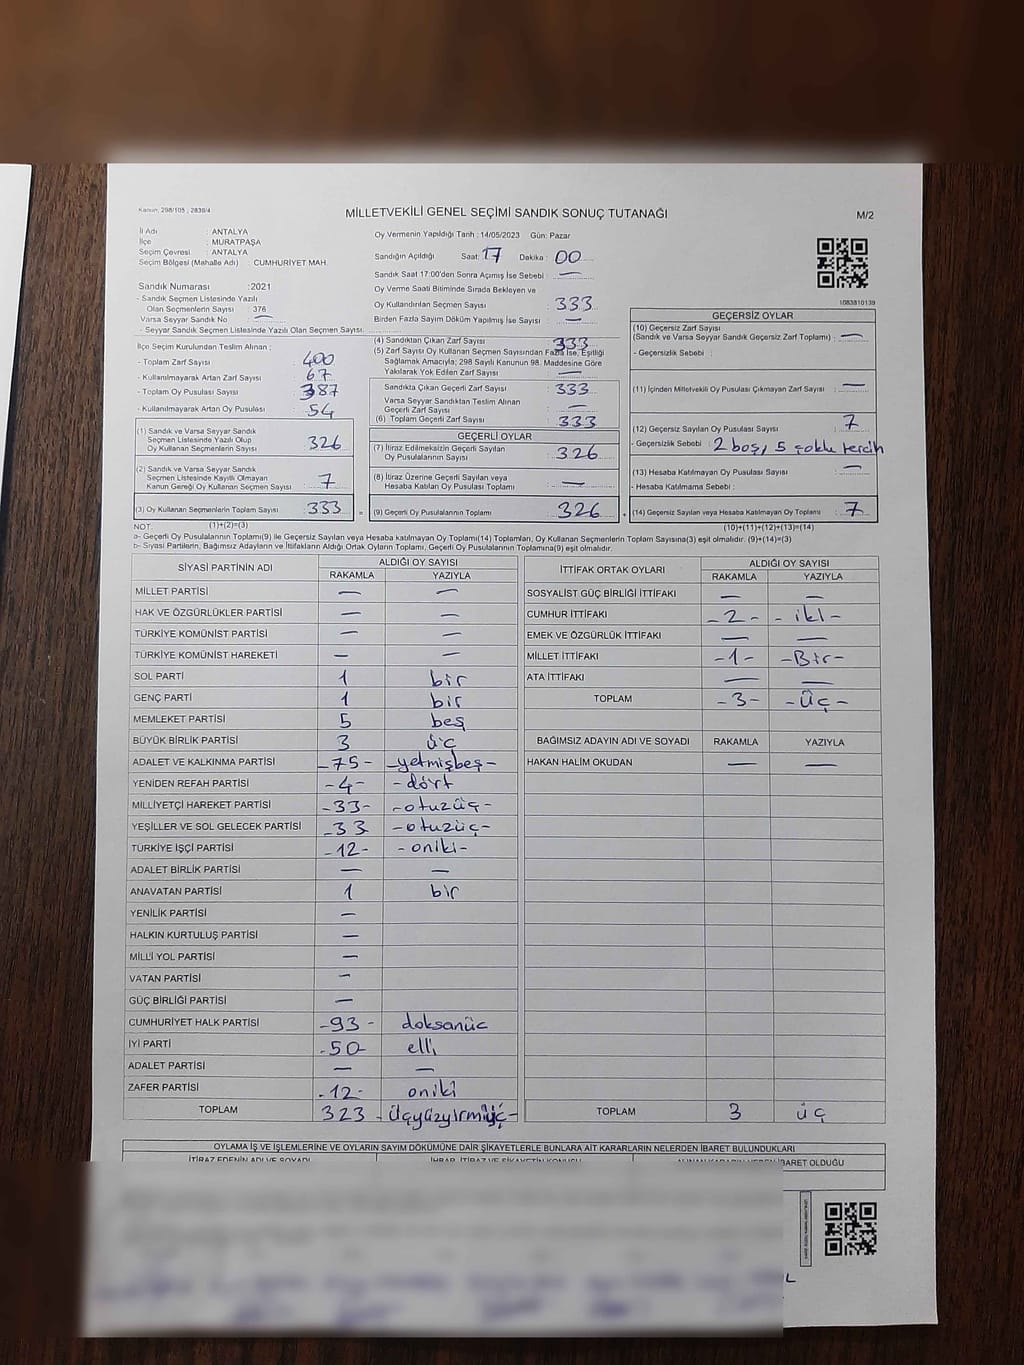 Kanun, 298/105 ; 2839/4
MİLLETVEKİLİ GENEL SEÇİMİ SANDIK SONUÇ TUTANAĞI
M/2
İl Adı : ANTALYA
İlçe : MURATPAŞA
Seçim Çevresi : ANTALYA
Seçim Bölgesi (Mahalle Adı) : CUMHURİYET MAH.
Sandık Numarası :2021
- Sandık Seçmen Listesinde Yazılı
Olan Seçmenlerin Sayısı : 376
Varsa Seyyar Sandık No : —
- Seyyar Sandık Seçmen Listesinde Yazılı Olan Seçmen Sayısı:
İlçe Seçim Kurulundan Teslim Alınan ;
- Toplam Zarf Sayısı : 400
- Kullanılmayarak Artan Zarf Sayısı : 67
- Toplam Oy Pusulası Sayısı : 387
- Kullanılmayarak Artan Oy Pusulası : 54
(1) Sandık ve Varsa Seyyar Sandık
Seçmen Listesinde Yazılı Olup
Oy Kullanan Seçmenlerin Sayısı : 326
(2) Sandık ve Varsa Seyyar Sandık
Seçmen Listesinde Kayıtlı Olmayan
Kanun Gereği Oy Kullanan Seçmen Sayısı : 7
(3) Oy Kullanan Seçmenlerin Toplam Sayısı : 333
(1)+(2)=(3)
Oy Vermenin Yapıldığı Tarih : 14/05/2023 Gün: Pazar
Sandığın Açıldığı Saat: 17 Dakika : 00
Sandık Saat 17:00'den Sonra Açımış İse Sebebi : —
Oy Verme Saati Bitiminde Sırada Bekleyen ve
Oy Kullandırılan Seçmen Sayısı : 333
Birden Fazla Sayım Döküm Yapılmış İse Sayısı : —
(4) Sandıktan Çıkan Zarf Sayısı : 333
(5) Zarf Sayısı Oy Kullanan Seçmen Sayısından Fazla İse, Eşitliği
Sağlamak Amacıyla; 298 Sayılı Kanunun 98. Maddesine Göre
Yakılarak Yok Edilen Zarf Sayısı : —
Sandıkta Çıkan Geçerli Zarf Sayısı : 333
Varsa Seyyar Sandıktan Teslim Alınan
Geçerli Zarf Sayısı : —
(6) Toplam Geçerli Zarf Sayısı : 333
GEÇERLİ OYLAR
(7) İtiraz Edilmeksizin Geçerli Sayılan
Oy Pusulalarının Sayısı : 326
(8) İtiraz Üzerine Geçerli Sayılan veya
Hesaba Katılan Oy Pusulası Toplamı : —
(9) Geçerli Oy Pusulalarının Toplamı : 326
1083810139
GEÇERSİZ OYLAR
(10) Geçersiz Zarf Sayısı
(Sandık ve Varsa Seyyar Sandık Geçersiz Zarf Toplamı) : —
- Geçersizlik Sebebi :
(11) İçinden Milletvekili Oy Pusulası Çıkmayan Zarf Sayısı : —
(12) Geçersiz Sayılan Oy Pusulası Sayısı : 7
- Geçersizlik Sebebi : 2 boş, 5 çoklu tercih
(13) Hesaba Katılmayan Oy Pusulası Sayısı : —
- Hesaba Katılmama Sebebi :
(14) Geçersiz Sayılan veya Hesaba Katılmayan Oy Toplamı : 7
(10)+(11)+(12)+(13)=(14)
NOT:
a- Geçerli Oy Pusulalarının Toplamı(9) ile Geçersiz Sayılan veya Hesaba katılmayan Oy Toplamı(14) Toplamları, Oy Kullanan Seçmenlerin Toplam Sayısına(3) eşit olmalıdır. (9)+(14)=(3)
b- Siyasi Partilerin, Bağımsız Adayların ve İttifakların Aldığı Ortak Oyların Toplamı, Geçerli Oy Pusulalarının Toplamına(9) eşit olmalıdır.
SİYASİ PARTİNİN ADI ALDIĞI OY SAYISI
RAKAMLA YAZIYLA
MİLLET PARTİSİ — —
HAK VE ÖZGÜRLÜKLER PARTİSİ — —
TÜRKİYE KOMÜNİST PARTİSİ — —
TÜRKİYE KOMÜNİST HAREKETİ — —
SOL PARTİ 1 bir
GENÇ PARTİ 1 bir
MEMLEKET PARTİSİ 5 beş
BÜYÜK BİRLİK PARTİSİ 3 üç
ADALET VE KALKINMA PARTİSİ -75- -yetmişbeş-
YENİDEN REFAH PARTİSİ -4- -dört
MİLLİYETÇİ HAREKET PARTİSİ -33- -otuzüç-
YEŞİLLER VE SOL GELECEK PARTİSİ -33 -otuzüç-
TÜRKİYE İŞÇİ PARTİSİ -12- -oniki-
ADALET BİRLİK PARTİSİ — —
ANAVATAN PARTİSİ 1 bir
YENİLİK PARTİSİ —
HALKIN KURTULUŞ PARTİSİ —
MİLLİ YOL PARTİSİ —
VATAN PARTİSİ —
GÜÇ BİRLİĞİ PARTİSİ —
CUMHURİYET HALK PARTİSİ -93- doksanüç
İYİ PARTİ -50- elli
ADALET PARTİSİ — —
ZAFER PARTİSİ -12- oniki
TOPLAM 323 -üçyüzyirmiüç-
İTTİFAK ORTAK OYLARI ALDIĞI OY SAYISI
RAKAMLA YAZIYLA
SOSYALİST GÜÇ BİRLİĞİ İTTİFAKI — —
CUMHUR İTTİFAKI -2- -iki-
EMEK VE ÖZGÜRLÜK İTTİFAKI — —
MİLLET İTTİFAKI -1- -Bir-
ATA İTTİFAKI — —
TOPLAM -3- -üç-
BAĞIMSIZ ADAYIN ADI VE SOYADI RAKAMLA YAZIYLA
HAKAN HALİM OKUDAN — —
TOPLAM 3 üç
OYLAMA İŞ VE İŞLEMLERİNE VE OYLARIN SAYIM DÖKÜMÜNE DAİR ŞİKAYETLERLE BUNLARA AİT KARARLARIN NELERDEN İBARET BULUNDUKLARI
İTİRAZ EDENİN ADI VE SOYADI İHBAR, İTİRAZ VE ŞİKAYETİN KONUSU ALINAN KARARIN NEDEN İBARET OLDUĞU